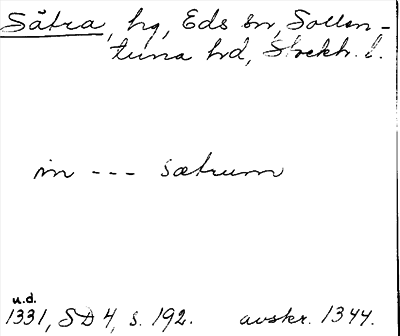 Sätra, hg, Eds sn, Sollen-
tuna hd, Stockh. l.
in --- sætrum
u.d.
1331, SD 4, s. 192. avskr. 1344.